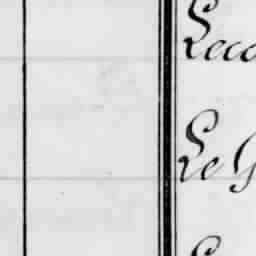 Leco
Le G